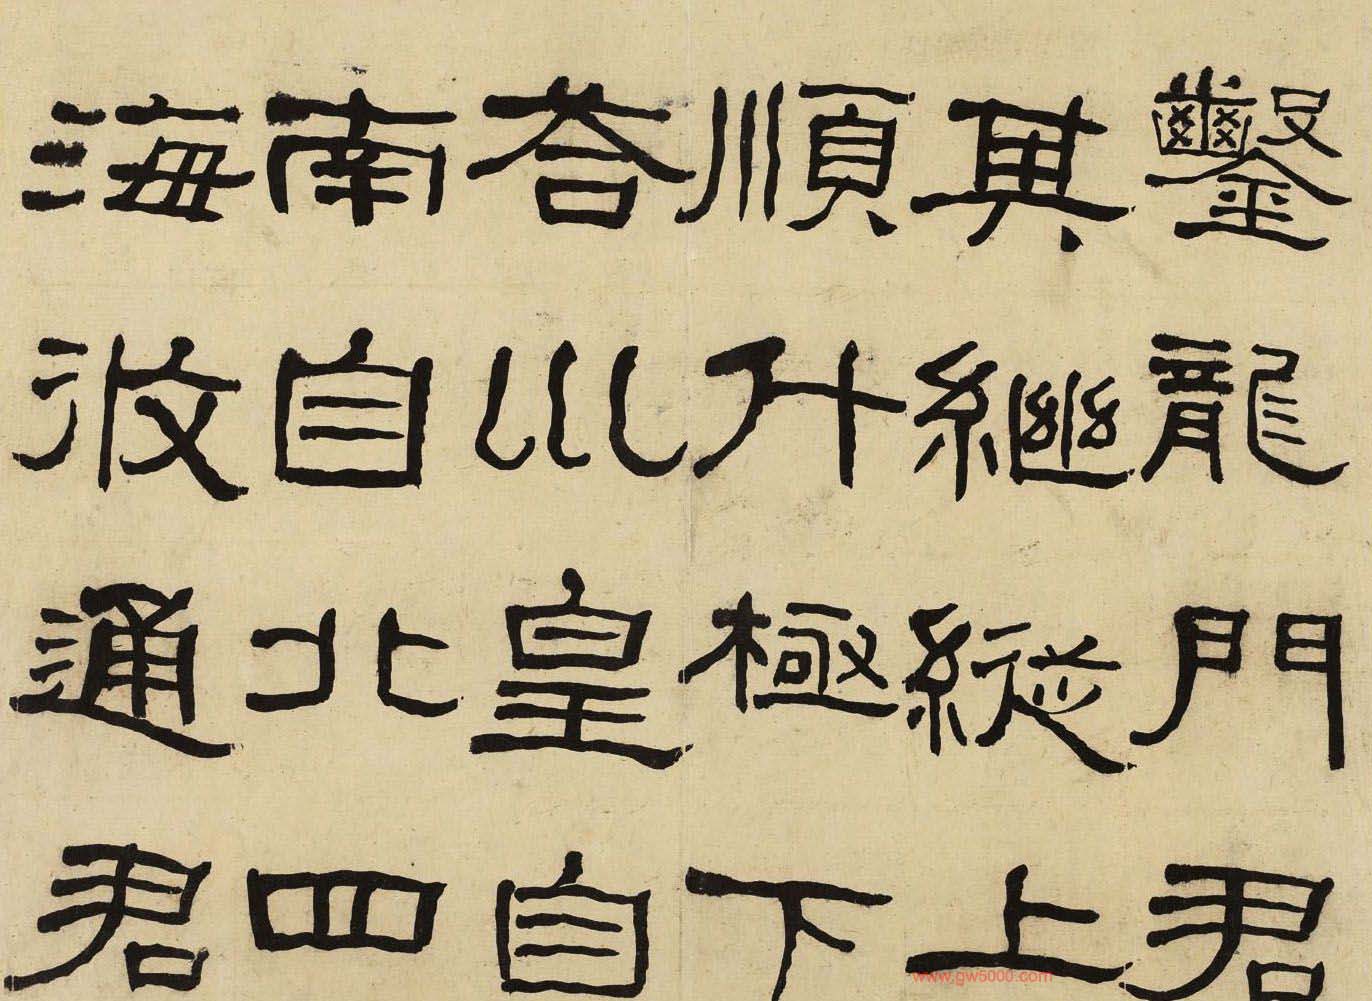 鑿龍門君
其繼縱上
順斗極下
荅巛皇自
南自北四
海攸通君
www.gw5000.com